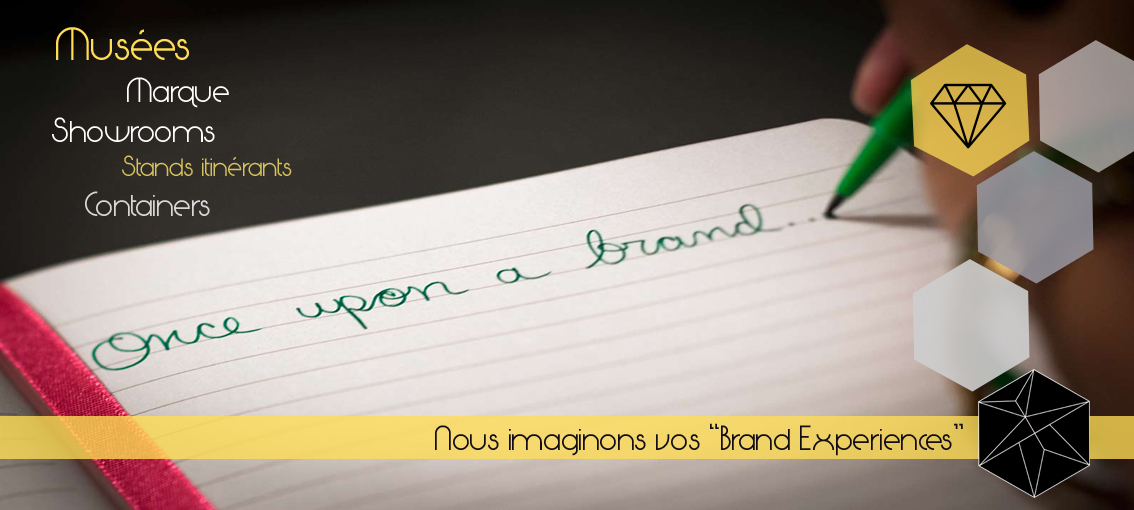 Musées
Marque
Showrooms
Stands itinérants
Containers
Once upon a brand...
Nous imaginons vos “Brand Experiences”